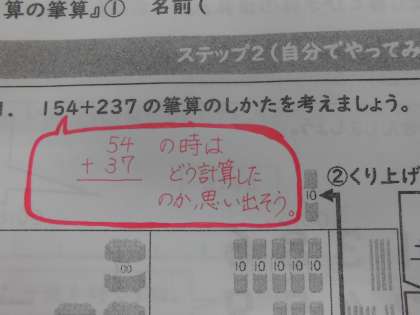 算の筆算』① 名前(
ステップ2(自分でやってみ
1. 154+237の筆算のしかたを考えましょう。
54
+ 37
の時は
どう計算した
のか、思い出そう。
②くり上げ
10
00
10 10 10 10